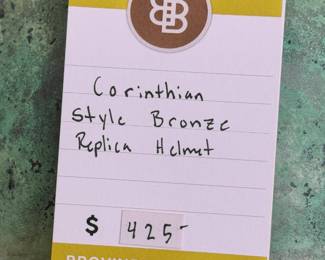 BB
Corinthian
Style Bronze
Replica Helmet
$ 425-